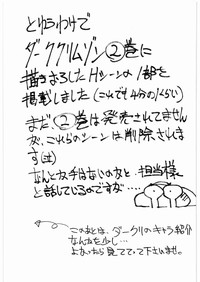 とゆうわけで
ダーククリムゾン②巻に
描きおろしたHシーンの1部を
掲載しました(これで4分の1くらい)
まだ、②巻は発売されてません
が、これらのシーンは削除されま
す(泣)
なんとか手はないのかと、担当様
と話しているのですが…
この次は、ダークリのキャラ紹介
なんかを少し…
よかったら見てって下さいませ。